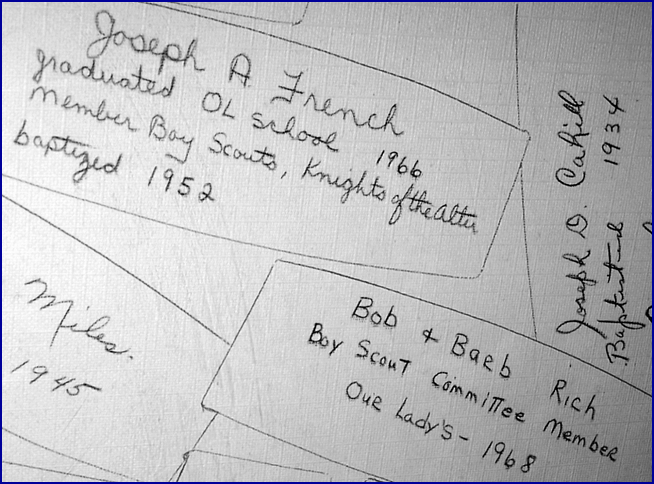 Joseph A French
graduated OL School 1966
Member Boy Scouts, Knights of the Alter
baptized 1952
Joseph D. Cahill
1934
Miles.
1945
Bob & Barb Rich
Boy Scout Committee Member
Our Lady's - 1968